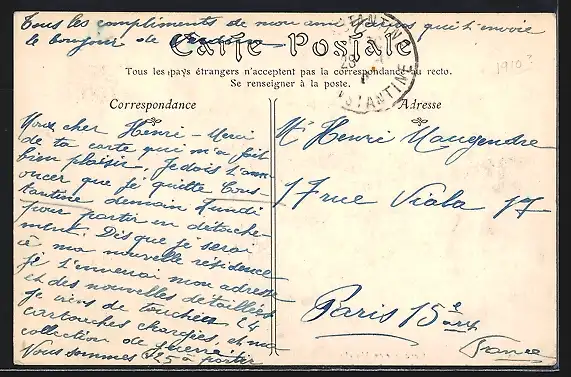 Tous les compliments de mon ami qui t'envoie
le bonjour de
Carte Postale
Tous les pays étrangers n'acceptent pas la correspondance au recto.
Se renseigner à la poste.
1910?
CONSTANTINE
CONSTANTINE
Correspondance
Mon cher Henri - Merci
de ta carte qui m'a fait
bien plaisir. Je dois t'ann-
oncer que je quitte Cons-
tantine demain Lundi
pour partir en détache-
ment. Dis que je serai
à ma nouvelle résidence
je t'enverrai mon adresse
et des nouvelles détaillées
Je viens de toucher 24
cartouches chargées, et ma
collection de guerre.
Nous sommes 25 à partir
Adresse
Mr Henri Maugendre
17 rue Viala 17
Paris 15e arrt
France